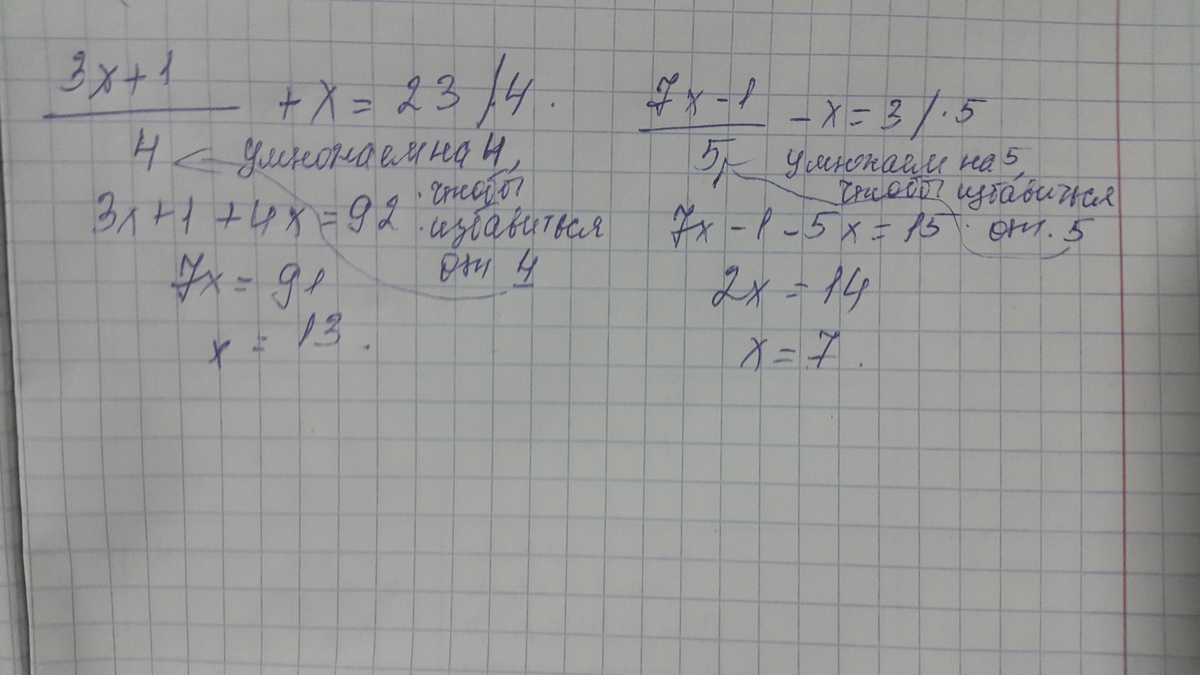 3x+1
4
+ x = 23 /4.
умножаем на 4,
чтобы
3x+1 +4x = 92
избавиться
от 4
7x = 91
x = 13.
7x-1
5
- x = 3 /·5
умножаем на 5,
чтобы избавиться
7x - 1 - 5x = 15
от 5
2x = 14
x = 7.